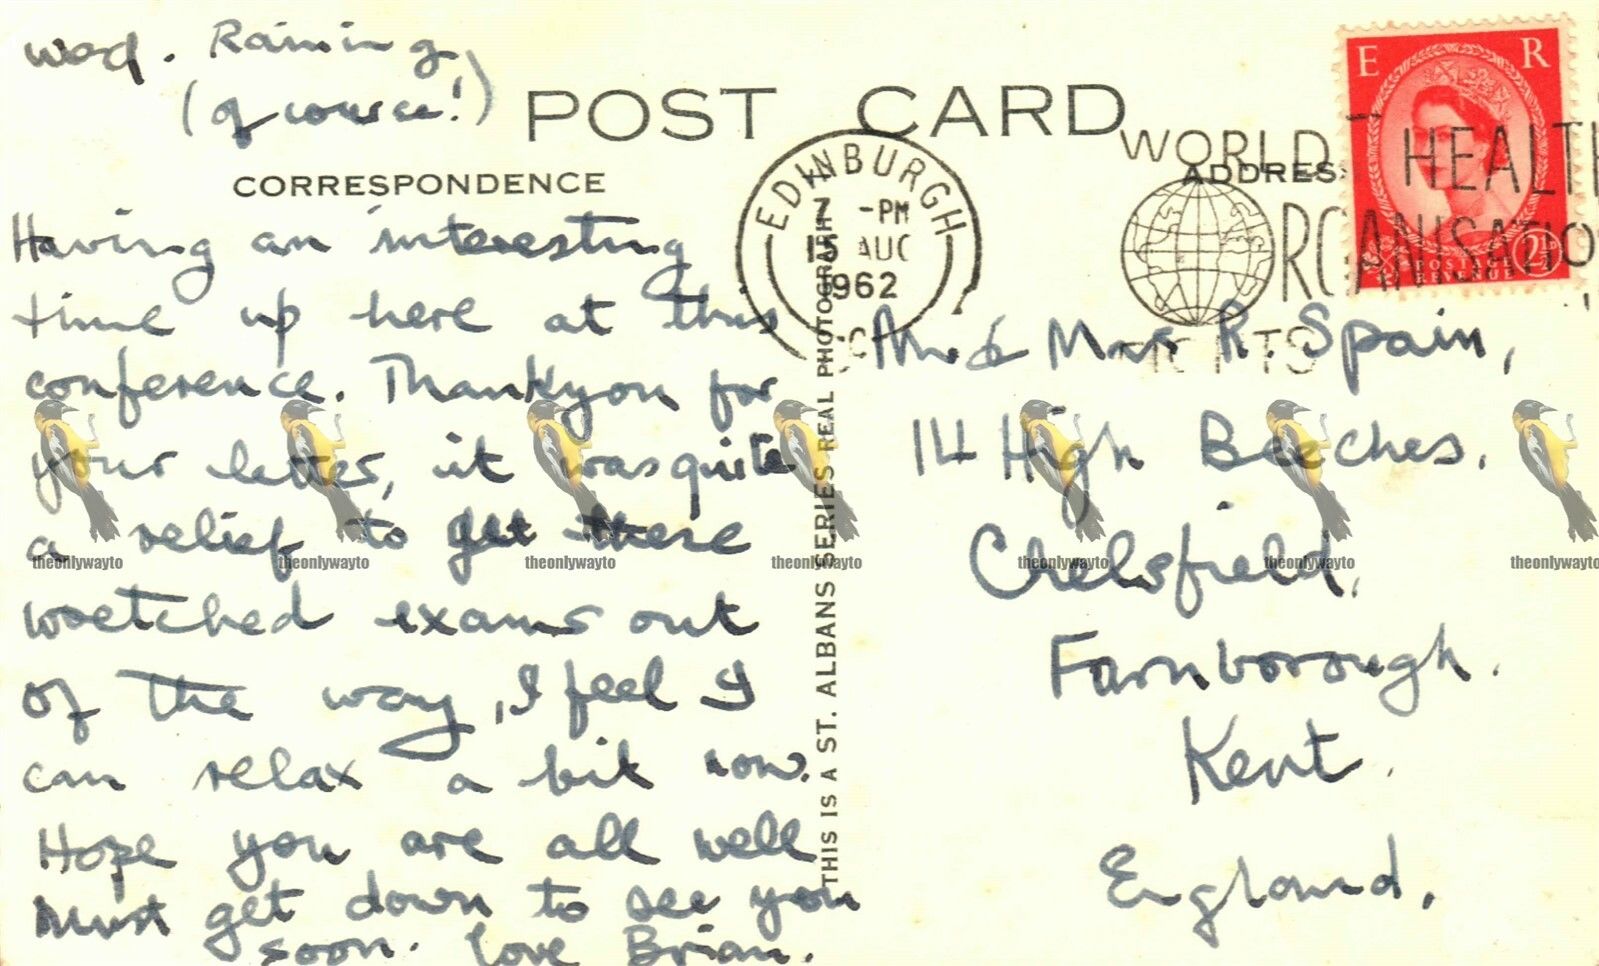 Wed. Raining
(of course!)
POST CARD
CORRESPONDENCE
ADDRES
EDINBURGH
7 -PM
15 AUG
1962
WORLD HEALTH
ORGANISATIO
E R
POSTAGE
REVENUE
2½
Having an interesting
time up here at this
conference. Thankyou for
your letter, it was quite
a relief to get these
wretched exams out
of the way, I feel I
can relax a bit now.
Hope you are all well
Must get down to see you
soon. Love Brian.
THIS IS A ST. ALBANS SERIES REAL PHOTOGRAPH
Mr & Mrs R. Spain,
14 High Beeches.
Chelsfield.
Farnborough.
Kent.
England.
theonlywayto
theonlywayto
theonlywayto
theonlywayto
theonlywayto
theonlywayto
theonlywayto